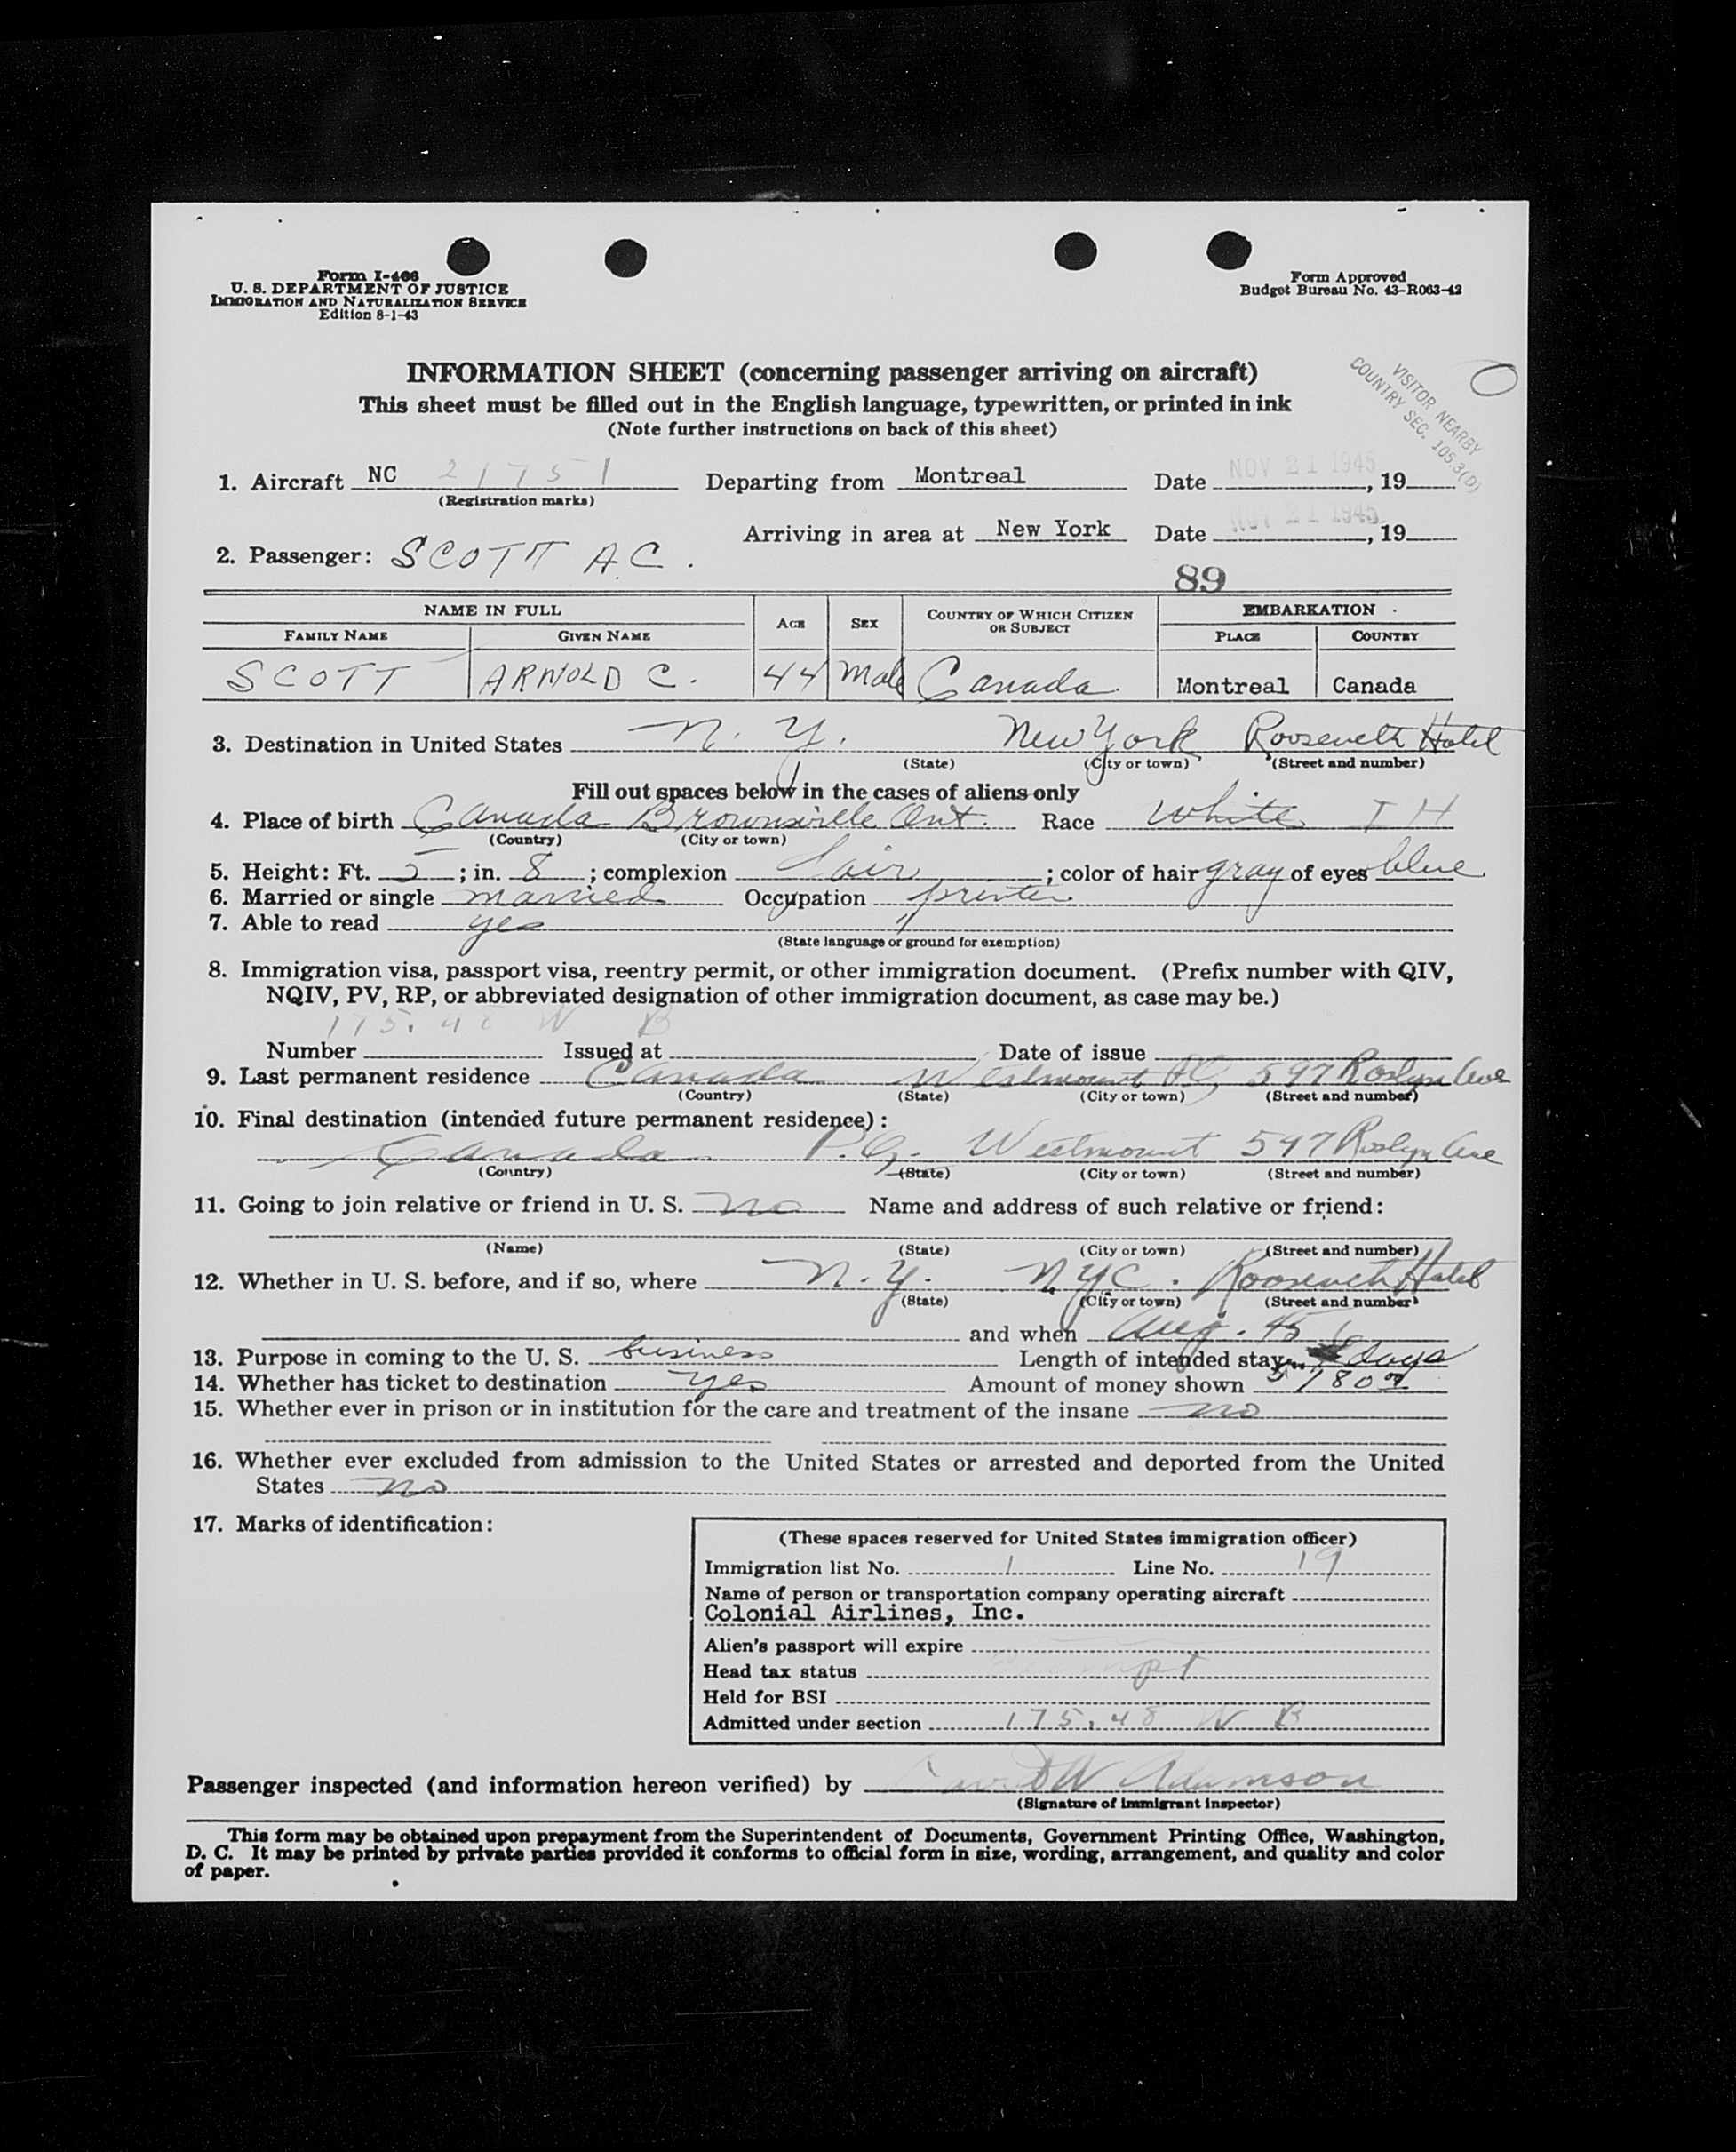 Form I-466
U. S. DEPARTMENT OF JUSTICE
IMMIGRATION AND NATURALIZATION SERVICE
Edition 8-1-43
Form Approved
Budget Bureau No. 43-R063-42
INFORMATION SHEET (concerning passenger arriving on aircraft)
This sheet must be filled out in the English language, typewritten, or printed in ink
(Note further instructions on back of this sheet)
VISITOR NEARBY
COUNTRY SEC. 105.3(D)
1. Aircraft NC 21751 Departing from Montreal Date NOV 21 1945, 19
(Registration marks)
Arriving in area at New York Date NOV 21 1945, 19
2. Passenger: SCOTT A.C.
89
NAME IN FULL AGE SEX COUNTRY OF WHICH CITIZEN OR SUBJECT EMBARKATION
FAMILY NAME GIVEN NAME PLACE COUNTRY
SCOTT ARNOLD C. 44 Male Canada Montreal Canada
3. Destination in United States N. Y. New York Roosevelt Hotel
(State) (City or town) (Street and number)
Fill out spaces below in the cases of aliens only
4. Place of birth Canada Brownsville Ont. Race White I H
(Country) (City or town)
5. Height: Ft. 5; in. 8; complexion fair; color of hair gray of eyes blue
6. Married or single married Occupation printer
7. Able to read yes
(State language or ground for exemption)
8. Immigration visa, passport visa, reentry permit, or other immigration document. (Prefix number with QIV,
NQIV, PV, RP, or abbreviated designation of other immigration document, as case may be.)
175.48 W B
Number Issued at Date of issue
9. Last permanent residence Canada Westmount 597 Roslyn Ave
(Country) (State) (City or town) (Street and number)
10. Final destination (intended future permanent residence):
Canada P.Q. Westmount 597 Roslyn Ave
(Country) (State) (City or town) (Street and number)
11. Going to join relative or friend in U. S. no Name and address of such relative or friend:
(Name) (State) (City or town) (Street and number)
12. Whether in U. S. before, and if so, where N. Y. NYC. Roosevelt Hotel
(State) (City or town) (Street and number)
and when Aug. 45
13. Purpose in coming to the U. S. business Length of intended stay days
14. Whether has ticket to destination yes Amount of money shown $180.00
15. Whether ever in prison or in institution for the care and treatment of the insane no
16. Whether ever excluded from admission to the United States or arrested and deported from the United
States no
17. Marks of identification:
(These spaces reserved for United States immigration officer)
Immigration list No. 1 Line No. 19
Name of person or transportation company operating aircraft
Colonial Airlines, Inc.
Alien's passport will expire
Head tax status exempt
Held for BSI
Admitted under section 175.48 W B
Passenger inspected (and information hereon verified) by W Adamson
(Signature of immigrant inspector)
This form may be obtained upon prepayment from the Superintendent of Documents, Government Printing Office, Washington,
D. C. It may be printed by private parties provided it conforms to official form in size, wording, arrangement, and quality and color
of paper.